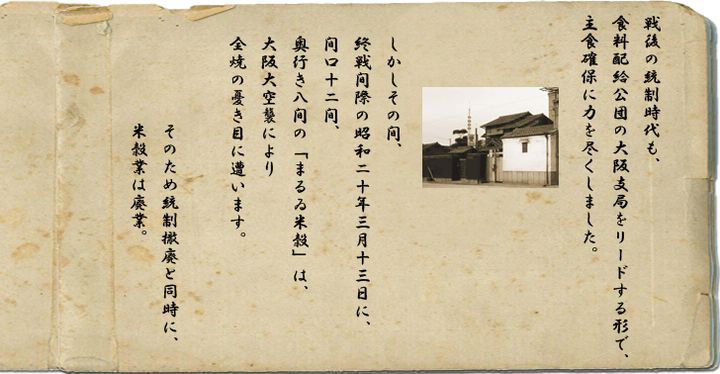 戦後の統制時代も、
食料配給公団の大阪支局をリードする形で、
主食確保に力を尽くしました。
しかしその間、
終戦间際の昭和二十年三月十三日に、
间口十二间、
奥行き八间の「まるゐ米穀」は、
大阪大空襲により
全焼の憂き目に遭います。
そのため統制撤廃と同時に、
米穀業は廃業。